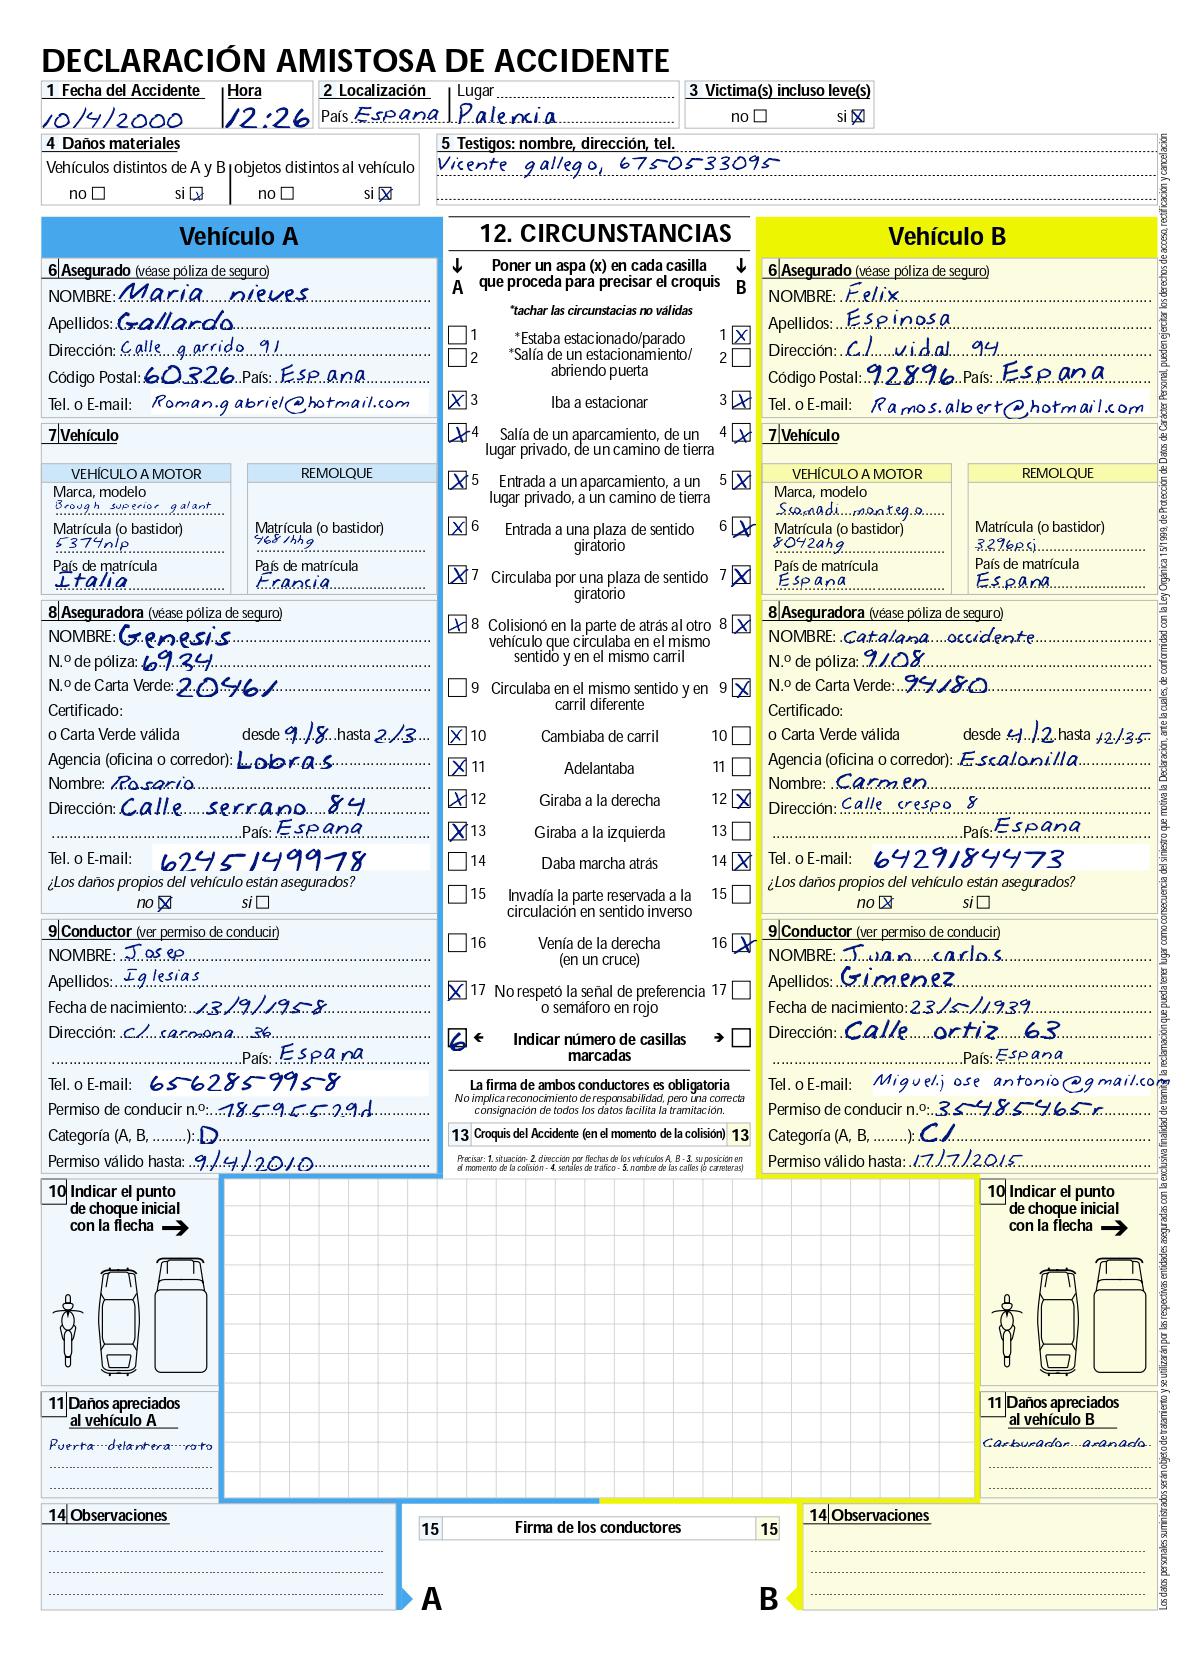 DECLARACIÓN AMISTOSA DE ACCIDENTE
1 Fecha del Accidente Hora
10/4/2000 12:26
2 Localización Lugar
País Espana Palencia
3 Victima(s) incluso leve(s)
no si X
4 Daños materiales
Vehículos distintos de A y B objetos distintos al vehículo
no si X no si X
5 Testigos: nombre, dirección, tel.
Vicente gallego, 6750533095
Vehículo A
6 Asegurado (véase póliza de seguro)
NOMBRE: Maria nieves
Apellidos: Gallardo
Dirección: Calle garrido 91
Código Postal: 60326 País: Espana
Tel. o E-mail: Roman.gabriel@hotmail.com
7 Vehículo
VEHÍCULO A MOTOR REMOLQUE
Marca, modelo
Brough superior galant
Matrícula (o bastidor) Matrícula (o bastidor)
5374nlp 4681hhg
País de matrícula País de matrícula
Italia Francia
8 Aseguradora (véase póliza de seguro)
NOMBRE: Genesis
N.º de póliza: 6934
N.º de Carta Verde: 20461
Certificado:
o Carta Verde válida desde 9/8 hasta 2/3
Agencia (oficina o corredor): Lobras
Nombre: Rosario
Dirección: Calle serrano 84
País: Espana
Tel. o E-mail: 62451499978
¿Los daños propios del vehículo están asegurados?
no X si
9 Conductor (ver permiso de conducir)
NOMBRE: Josep
Apellidos: Iglesias
Fecha de nacimiento: 13/9/1958
Dirección: C/ carmona 36
País: Espana
Tel. o E-mail: 6562859958
Permiso de conducir n.º: 785955529d
Categoría (A, B, ........): D
Permiso válido hasta: 9/4/2010
12. CIRCUNSTANCIAS
A Poner un aspa (x) en cada casilla que proceda para precisar el croquis B
*tachar las circunstacias no válidas
1 *Estaba estacionado/parado 1 X
2 *Salía de un estacionamiento/ 2
abriendo puerta
X 3 Iba a estacionar 3 X
X 4 Salía de un aparcamiento, de un 4 X
lugar privado, de un camino de tierra
X 5 Entrada a un aparcamiento, a un 5 X
lugar privado, a un camino de tierra
X 6 Entrada a una plaza de sentido 6 X
giratorio
X 7 Circulaba por una plaza de sentido 7 X
giratorio
X 8 Colisionó en la parte de atrás al otro 8 X
vehículo que circulaba en el mismo
sentido y en el mismo carril
9 Circulaba en el mismo sentido y en 9 X
carril diferente
X 10 Cambiaba de carril 10
X 11 Adelantaba 11
X 12 Giraba a la derecha 12 X
X 13 Giraba a la izquierda 13
14 Daba marcha atrás 14 X
15 Invadía la parte reservada a la 15
circulación en sentido inverso
16 Venía de la derecha 16 X
(en un cruce)
X 17 No respetó la señal de preferencia 17
o semáforo en rojo
6 Indicar número de casillas
marcadas
La firma de ambos conductores es obligatoria
No implica reconocimiento de responsabilidad, pero una correcta
consignación de todos los datos facilita la tramitación.
13 Croquis del Accidente (en el momento de la colisión) 13
Precisar: 1. situación- 2. dirección por flechas de los vehículos A, B - 3. su posición en
el momento de la colisión - 4. señales de tráfico - 5. nombre de las calles (o carreteras)
Vehículo B
6 Asegurado (véase póliza de seguro)
NOMBRE: Felix
Apellidos: Espinosa
Dirección: C/ vidal 94
Código Postal: 92896 País: Espana
Tel. o E-mail: Ramos.albert@hotmail.com
7 Vehículo
VEHÍCULO A MOTOR REMOLQUE
Marca, modelo
Scomadi montego
Matrícula (o bastidor) Matrícula (o bastidor)
8042ahg 3296pcj
País de matrícula País de matrícula
Espana Espana
8 Aseguradora (véase póliza de seguro)
NOMBRE: Catalana occidente
N.º de póliza: 9108
N.º de Carta Verde: 94180
Certificado:
o Carta Verde válida desde 4/2 hasta 12/35
Agencia (oficina o corredor): Escalonilla
Nombre: Carmen
Dirección: Calle crespo 8
País: Espana
Tel. o E-mail: 6429184473
¿Los daños propios del vehículo están asegurados?
no X si
9 Conductor (ver permiso de conducir)
NOMBRE: Juan carlos
Apellidos: Gimenez
Fecha de nacimiento: 23/5/1939
Dirección: Calle ortiz 63
País: Espana
Tel. o E-mail: Miguel.jose antonio@gmail.com
Permiso de conducir n.º: 35485465r
Categoría (A, B, ........): C1
Permiso válido hasta: 17/7/2015
10 Indicar el punto
de choque inicial
con la flecha
11 Daños apreciados
al vehículo A
Puerta delantera roto
10 Indicar el punto
de choque inicial
con la flecha
11 Daños apreciados
al vehículo B
Carburador aranado
14 Observaciones
15 Firma de los conductores 15
A B
14 Observaciones
Los datos personales suministrados serán objeto de tratamiento y se utilizarán por las respectivas entidades aseguradas con la exclusiva finalidad de tramitar la reclamación que pueda tener lugar como consecuencia del siniestro que motiva la Declaración, ante la cuales, de conformidad con la Ley Orgánica 15/1999, de Protección de Datos de Carácter Personal, pueden ejercitar los derechos de acceso, rectificación y cancelación